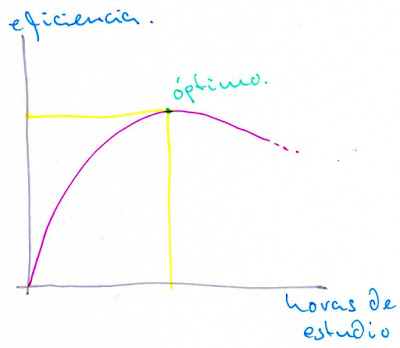 eficiencia.
óptimo.
horas de
estudio